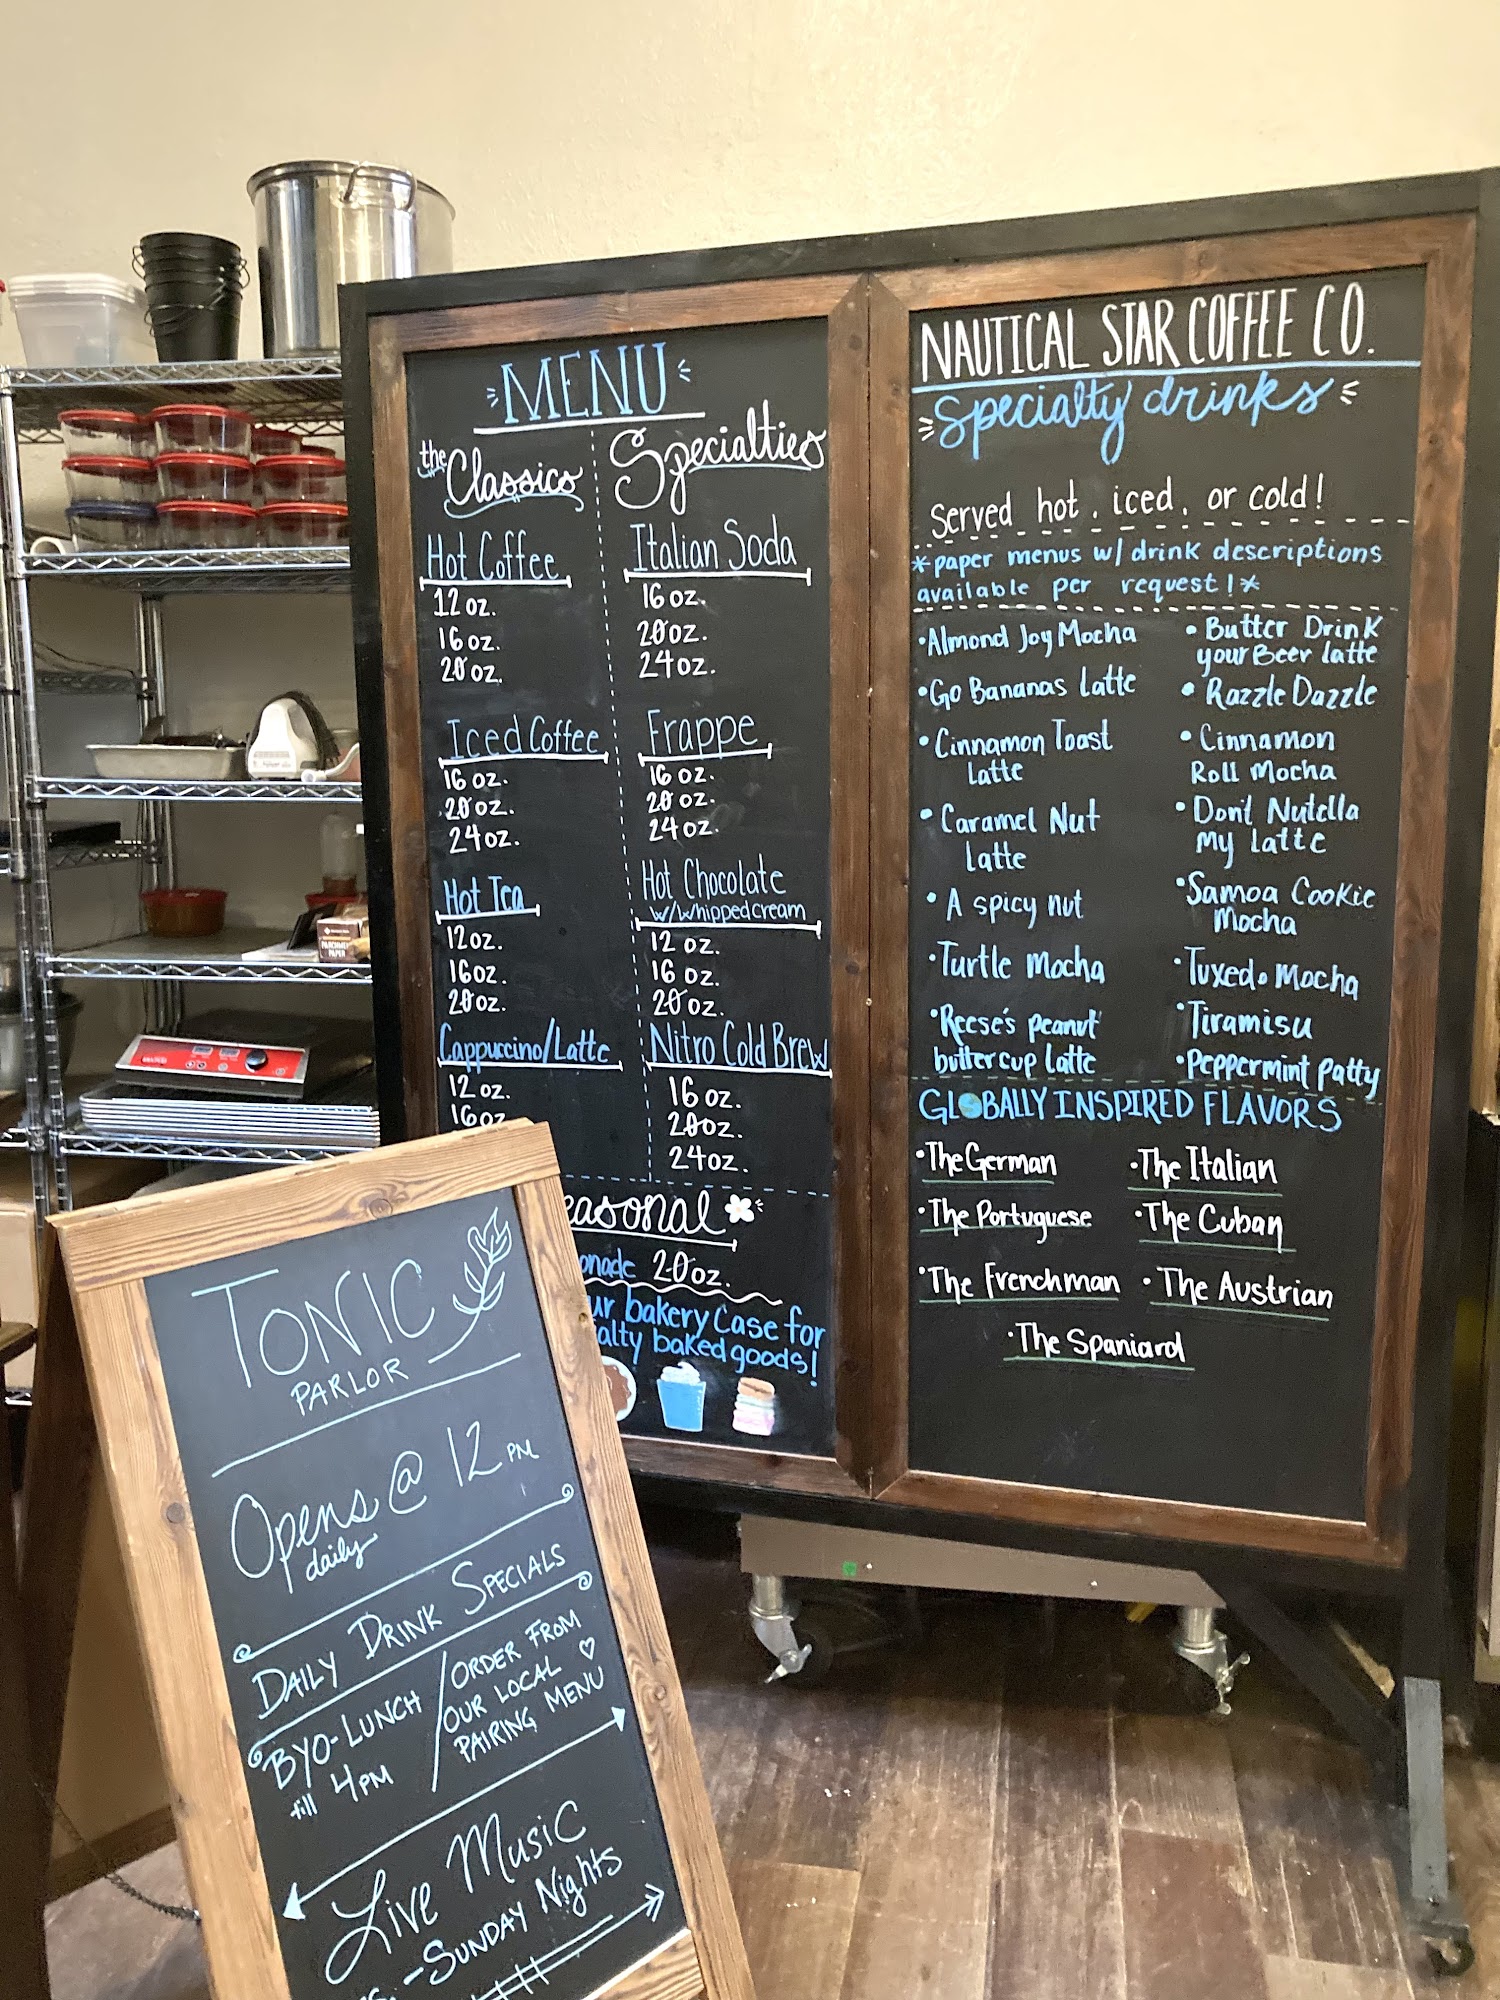 MENU
the Classics
Hot Coffee
12 oz.
16 oz.
20 oz.
Iced Coffee
16 oz.
20 oz.
24 oz.
Hot Tea
12 oz.
16 oz.
20 oz.
Cappuccino/Latte
12 oz.
16 oz
Specialties
Italian Soda
16 oz.
20 oz.
24 oz.
Frappe
16 oz.
20 oz.
24 oz.
Hot Chocolate
w/whipped cream
12 oz.
16 oz.
20 oz.
Nitro Cold Brew
16 oz.
20 oz.
24 oz.
easonal
onade 20 oz.
ur bakery case for
alty baked goods!
NAUTICAL STAR COFFEE CO.
Specialty drinks
Served hot, iced, or cold!
*paper menus w/ drink descriptions
available per request!*
• Almond Joy Mocha
• Go Bananas Latte
• Cinnamon Toast
Latte
• Caramel Nut
Latte
• A spicy nut
• Turtle Mocha
• Reese's peanut
butter cup latte
• Butter Drink
your Beer latte
• Razzle Dazzle
• Cinnamon
Roll Mocha
• Don't Nutella
my latte
• Samoa Cookie
Mocha
• Tuxedo Mocha
• Tiramisu
• Peppermint Patty
GLOBALLY INSPIRED FLAVORS
• The German
• The Italian
• The Portuguese
• The Cuban
• The Frenchman
• The Austrian
• The Spaniard
TONIC
PARLOR
Opens @ 12 PM
daily
DAILY DRINK SPECIALS
BYO-LUNCH
till 4PM
/ ORDER FROM
OUR LOCAL ♡
PAIRING MENU
Live Music
-SUNDAY Nights
PARCHMENT
PAPER